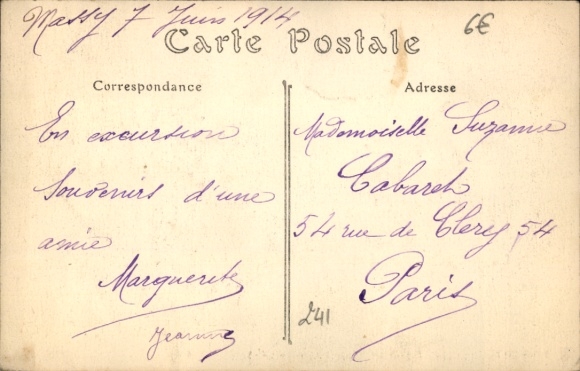 Massy 7 Juin 1914
6€
Carte Postale
Correspondance
En excursion
Souvenirs d'une
amie
Marguerite
Jeanne
Adresse
Mademoiselle Suzanne
Cabaret
54 rue de Clery 54
Paris
241